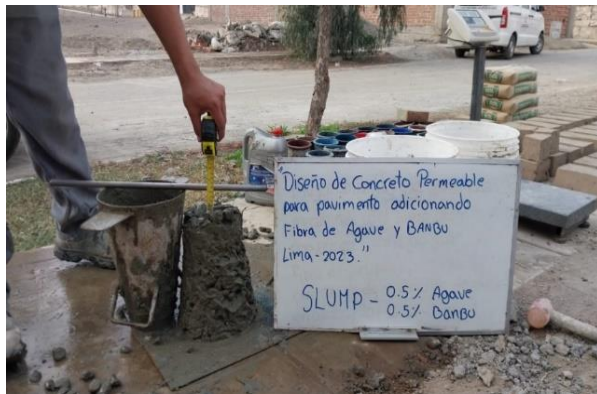 "Diseño de Concreto Permeable
para pavimento adicionando
Fibra de Agave y BANBU
Lima-2023."
SLUMP - 0.5% Agave
0.5% BanBU